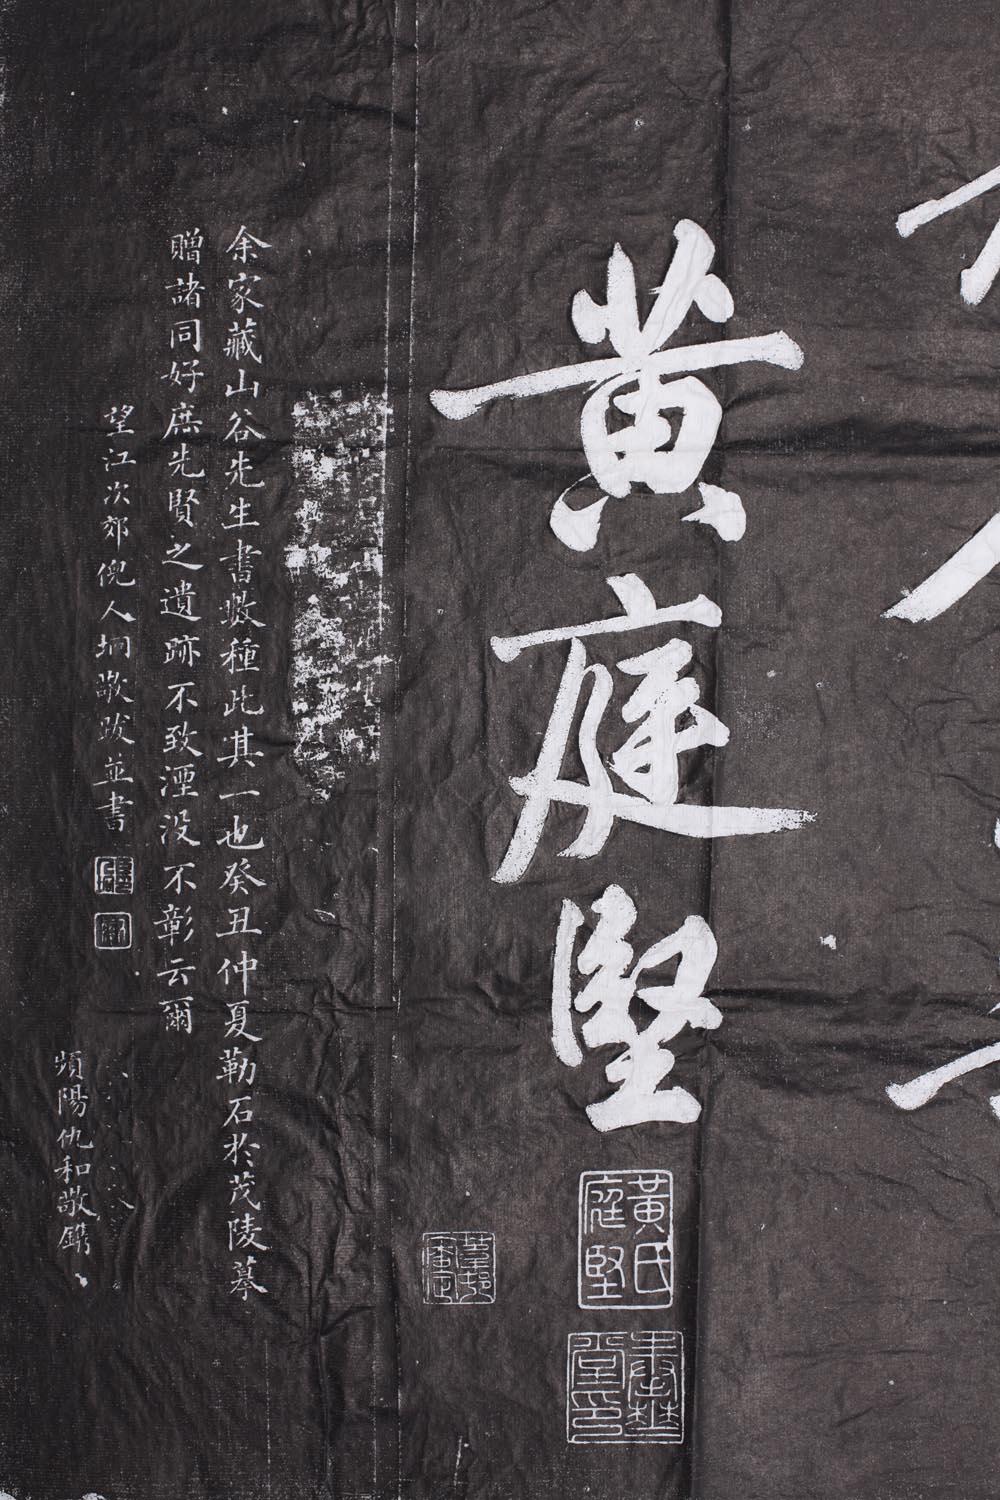 黄庭堅
黃氏庭堅
余家藏山谷先生書數種此其一也癸丑仲夏勒石於茂陵摹
贈諸同好庶先賢之遺跡不致湮没不彰云爾
望江次郊倪人垌敬跋並書
頻陽仇和敬鐫